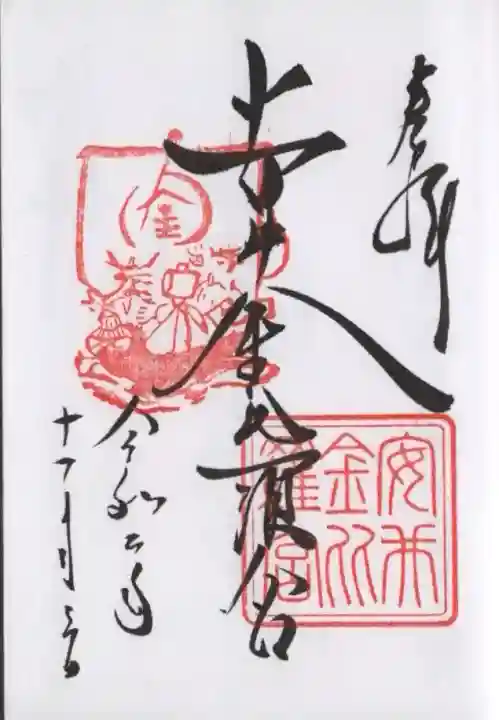 奉拝
安井金比羅宮
安井
金比
羅宮
金
令和二年
十一月三日